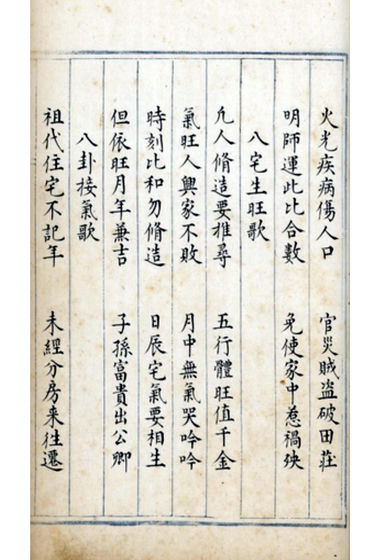 火光疾病傷人口　官災賊盗破田莊
明師運此比合數　免使家中惹禍殃
八宅生旺歌
凢人脩造要推尋　五行體旺值千金
氣旺人興家不敗　月中無氣哭吟吟
時刻比和勿脩造　日辰宅氣要相生
但依旺月年兼吉　子孫富貴出公卿
八卦接氣歌
祖代住宅不記年　未經分房来往遷